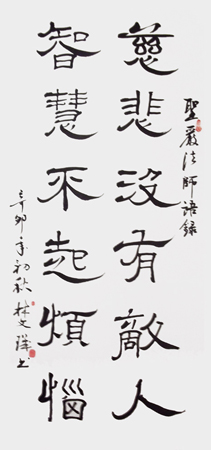 聖嚴法師語錄
慈悲沒有敵人
智慧不起煩惱
辛卯年初秋林文彬書